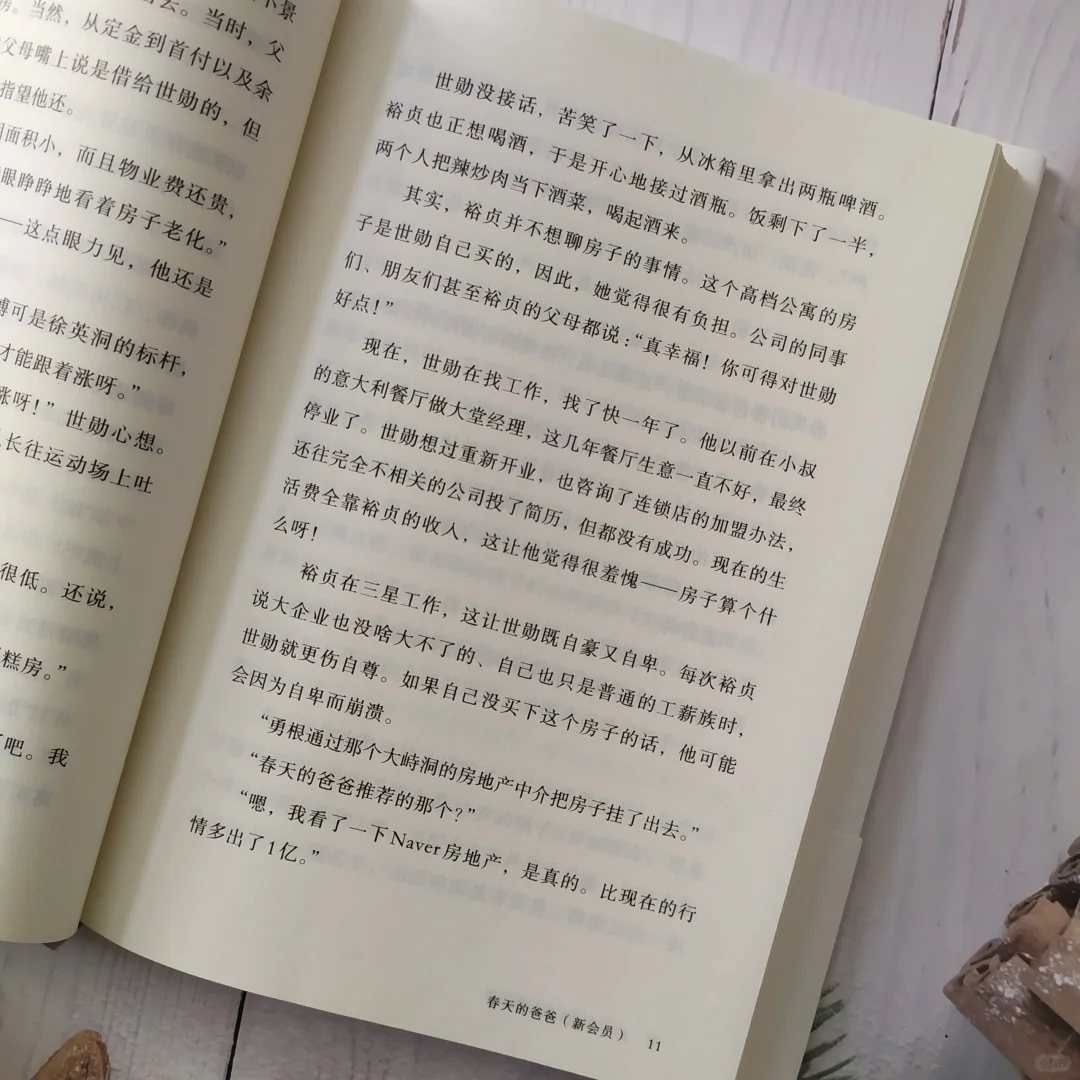 不景
出去。当时，父
当然，从定金到首付以及余
父母嘴上说是借给世勋的，但
指望他还。
面积小，而且物业费还贵，
眼睁睁地看着房子老化。”
——这点眼力见，他还是
可是徐英洞的标杆，
才能跟着涨呀。”
涨呀！”世勋心想。
长往运动场上吐
很低。还说，
糕房。”
吧。我
世勋没接话，苦笑了一下，从冰箱里拿出两瓶啤酒。
裕贞也正想喝酒，于是开心地接过酒瓶。饭剩下了一半，
两个人把辣炒肉当下酒菜，喝起酒来。
其实，裕贞并不想聊房子的事情。这个高档公寓的房
子是世勋自己买的，因此，她觉得很有负担。公司的同事
们、朋友们甚至裕贞的父母都说：“真幸福！你可得对世勋
好点！”
现在，世勋在找工作，找了快一年了。他以前在小叔
的意大利餐厅做大堂经理，这几年餐厅生意一直不好，最终
停业了。世勋想过重新开业，也咨询了连锁店的加盟办法，
还往完全不相关的公司投了简历，但都没有成功。现在的生
活费全靠裕贞的收入，这让他觉得很羞愧——房子算个什
么呀！
裕贞在三星工作，这让世勋既自豪又自卑。每次裕贞
说大企业也没啥大不了的、自己也只是普通的工薪族时，
世勋就更伤自尊。如果自己没买下这个房子的话，他可能
会因为自卑而崩溃。
“勇根通过那个大峙洞的房地产中介把房子挂了出去。”
“春天的爸爸推荐的那个？”
“嗯，我看了一下Naver房地产，是真的。比现在的行
情多出了1亿。”
春天的爸爸（新会员） 11